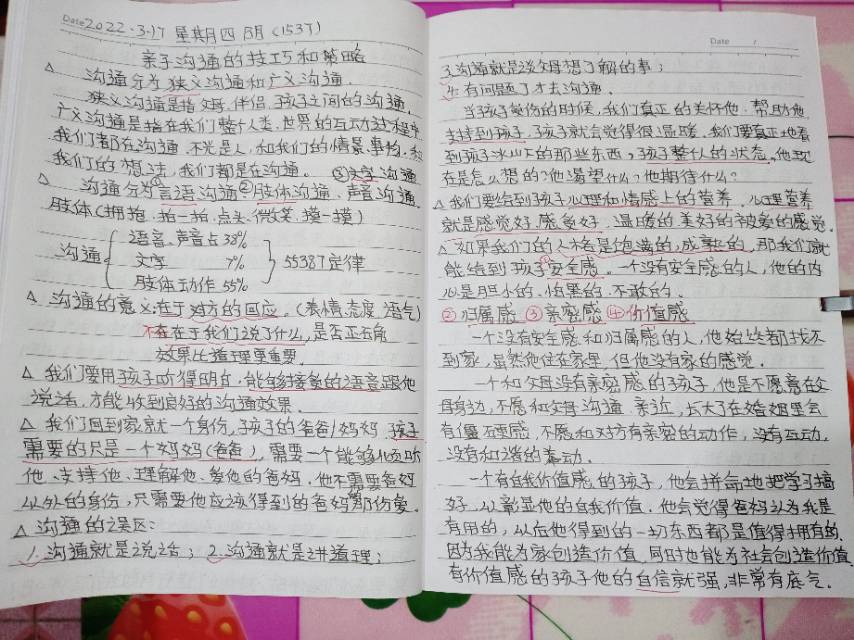 Date 2022.3.17 星期四 阴(153丁)
亲子沟通的技巧和策略
△ 沟通分为狭义沟通和广义沟通.
狭义沟通是指父母.伴侣.孩子之间的沟通.
广义沟通是指在我们整个人类.世界的互动过程中
我们都在沟通.不光是人.和我们的情景.事物.和
我们的想法,我们都是在沟通. ③文字沟通
△ 沟通分为①言语沟通.②肢体沟通.声音沟通.
肢体(拥抱.拍一拍.点头.微笑.摸一摸)
沟通 语音.声音占38%
文字 7% 5538丁定律
肢体动作 55%
△ 沟通的意义在于对方的回应.(表情.态度.语气)
不在于我们说了什么,是否正确
效果比道理更重要.
△ 我们要用孩子听得明白,能够接受的语言跟他
说话,才能收到良好的沟通效果.
△ 我们回到家就一个身份,孩子的爸爸/妈妈.孩子
需要的只是一个妈妈(爸爸),需要一个能够倾听
他.支持他.理解他.爱他的爸妈,他不需要爸妈
以外的身份,只需要他应该得到的爸妈的那份爱.
△ 沟通的误区:
1.沟通就是说话; 2.沟通就是讲道理;
Date /
3.沟通就是谈父母想了解的事;
4.有问题了才去沟通.
当孩子受伤的时候,我们真正的关怀他.帮助他
支持到孩子,孩子就会觉得很温暖.我们要真正地看
到孩子冰山下的那些东西,孩子整个人的状态,他现
在是怎么想的?他渴望什么?他期待什么?
△ 我们要给到孩子心理和情感上的营养.心理营养
就是感觉好.感受好.温暖的美好的被爱的感觉.
△ 如果我们的人格是饱满的,成熟的,那我们就
能给到孩子①安全感.一个没有安全感的人,他的内
心是胆小的.怕黑的.不敢的.
②归属感 ③亲密感 ④价值感
一个没有安全感和归属感的人,他始终都找不
到家,虽然他住在家里,但他没有家的感觉.
一个和父母没有亲密感的孩子,他是不愿意在父
母身边,不愿和父母沟通.亲近,长大了在婚姻里会
有僵硬感,不愿和对方有亲密的动作,没有互动,
没有和谐的集动.
一个有自我价值感的孩子,他会拼命地把学习搞
好,以彰显他的自我价值.他会觉得爸妈认为我是
有用的,从而他得到的一切东西都是值得拥有的.
因为我能为家创造价值,同时也能为社会创造价值
有价值感的孩子他的自信就强,非常有底气.